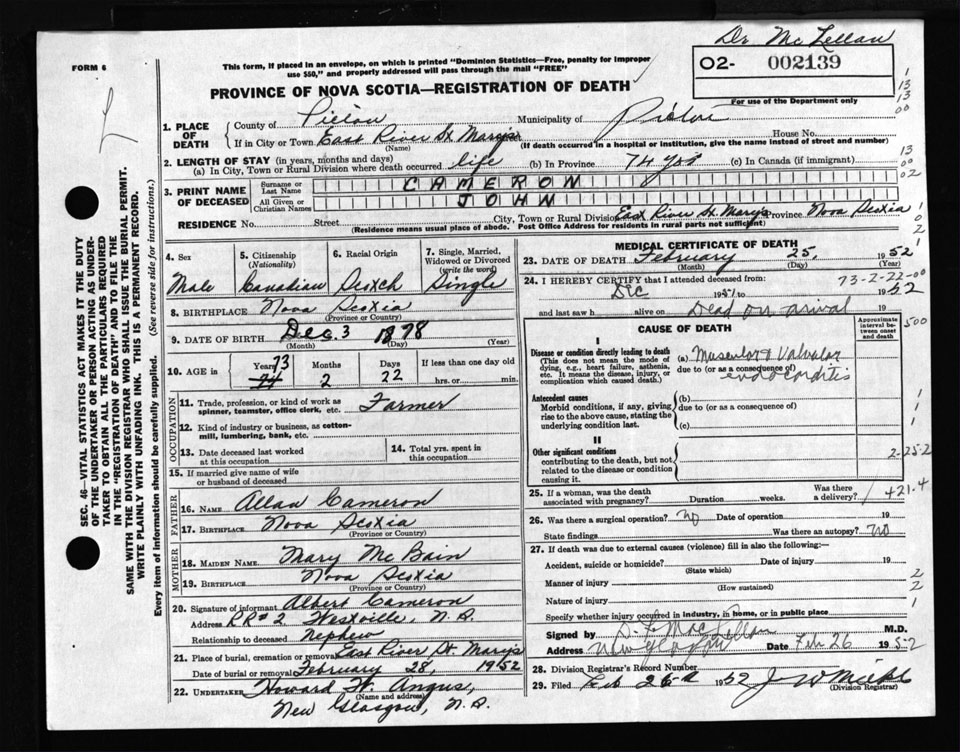 Dr. McLellan
FORM 6
This form, if placed in an envelope, on which is printed "Dominion Statistics—Free, penalty for improper
use $50," and properly addressed will pass through the mail "FREE"
O2- 002139
For use of the Department only
PROVINCE OF NOVA SCOTIA—REGISTRATION OF DEATH
1. PLACE OF DEATH
County of Pictou Municipality of Pictou
If in City or Town East River St. Mary's House No.
(Name) (If death occurred in a hospital or institution, give the name instead of street and number)
2. LENGTH OF STAY (in years, months and days)
(a) In City, Town or Rural Division where death occurred life (b) In Province 74 yrs (c) In Canada (if immigrant)
3. PRINT NAME OF DECEASED
Surname or Last Name CAMERON
All Given or Christian Names JOHN
RESIDENCE No. Street City, Town or Rural Division East River St. Mary's Province Nova Scotia
(Residence means usual place of abode. Post Office Address for residents in rural parts not sufficient)
4. Sex
Male
5. Citizenship (Nationality)
Canadian
6. Racial Origin
Scotch
7. Single, Married, Widowed or Divorced (write the word)
Single
8. BIRTHPLACE Nova Scotia
(Province or Country)
9. DATE OF BIRTH Dec. 3 1878
(Month) (Day) (Year)
10. AGE in Years 73 74 Months 2 Days 22 If less than one day old
hrs. or min.
OCCUPATION
11. Trade, profession, or kind of work as
spinner, teamster, office clerk, etc. Farmer
12. Kind of industry or business, as cotton-
mill, lumbering, bank, etc.
13. Date deceased last worked
at this occupation
14. Total yrs. spent in
this occupation
15. If married give name of wife
or husband of deceased
FATHER
16. NAME Allan Cameron
17. BIRTHPLACE Nova Scotia
(Province or Country)
MOTHER
18. MAIDEN NAME Mary McBain
19. BIRTHPLACE Nova Scotia
(Province or Country)
20. Signature of informant Albert Cameron
Address RR#2 Westville, N.S.
Relationship to deceased Nephew
21. Place of burial, cremation or removal East River St. Mary's
Date of burial or removal February 28, 1952
22. UNDERTAKER Howard W. Angus,
(Name and address)
New Glasgow, N.S.
MEDICAL CERTIFICATE OF DEATH
23. DATE OF DEATH February 25, 1952
(Month) (Day) (Year)
73-2-22-00
24. I HEREBY CERTIFY that I attended deceased from:
Dec 1951 1952
and last saw h alive on Dead on arival
CAUSE OF DEATH
Approximate interval between onset and death
I
Disease or condition directly leading to death
(This does not mean the mode of
dying, e.g., heart failure, asthenia,
etc. It means the disease, injury, or
complication which caused death.)
(a) Muscular & Valvular
due to (or as a consequence of)
endocarditis
Antecedent causes
Morbid conditions, if any, giving
rise to the above cause, stating the
underlying condition last.
(b)
due to (or as a consequence of)
(c)
II
Other significant conditions
contributing to the death, but not
related to the disease or condition
causing it.
25. If a woman, was the death
associated with pregnancy? Duration weeks. Was there
a delivery?
421.4
26. Was there a surgical operation? No Date of operation 19
State findings Was there an autopsy? No
27. If death was due to external causes (violence) fill in also the following:—
Accident, suicide or homicide? Date of injury 19
(State which)
Manner of injury
(How sustained)
Nature of injury
Specify whether injury occurred in industry, in home, or in public place
Signed by MacLellan M.D.
Address New Glasgow Date Feb 26 1952
28. Division Registrar's Record Number
29. Filed Feb 26 1952
(Division Registrar)
SEC. 46—VITAL STATISTICS ACT MAKES IT THE DUTY
OF THE UNDERTAKER OR PERSON ACTING AS UNDER-
TAKER TO OBTAIN ALL THE PARTICULARS REQUIRED
IN THE "REGISTRATION OF DEATH" AND TO FILE THE
SAME WITH THE DIVISION REGISTRAR WHO SHALL ISSUE THE BURIAL PERMIT.
WRITE PLAINLY WITH UNFADING INK. THIS IS A PERMANENT RECORD.
Every item of information should be carefully supplied. (See reverse side for instructions.)